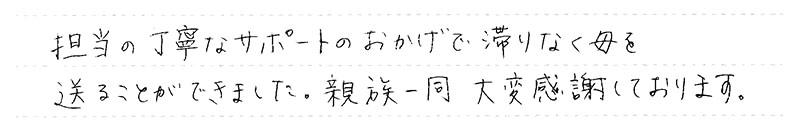 担当の丁寧なサポートのおかげで滞りなく母を
送ることができました。親族一同 大変感謝しております。